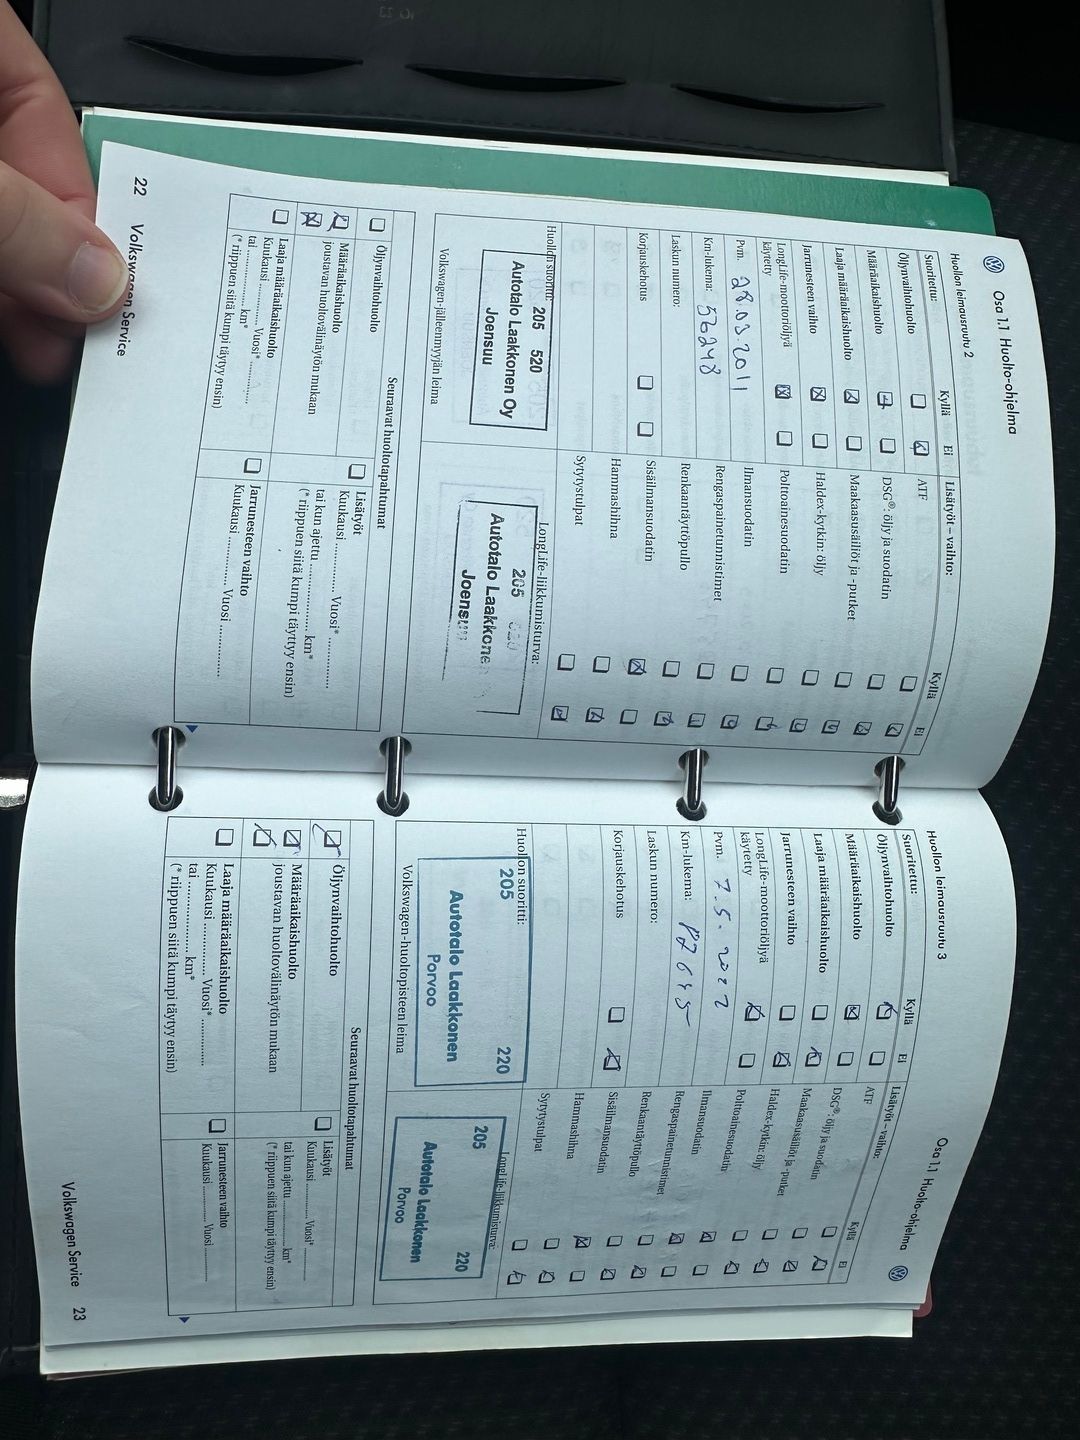 Osa 1.1 Huolto-ohjelma
Huollon leimausruutu 2
Suoritettu: Kyllä Ei
Öljynvaihtohuolto
Määräaikaishuolto
Laaja määräaikaishuolto
Jarrunesteen vaihto
LongLife-moottoriöljyä
käytetty
Pvm. 28.03.2011
Km-lukema: 56248
Laskun numero:
Korjauskehotus
Lisätyöt – vaihto: Kyllä Ei
ATF
DSG®: öljy ja suodatin
Maakaasusäiliöt ja -putket
Haldex-kytkin: öljy
Polttoainesuodatin
Ilmansuodatin
Rengaspainetunnistimet
Renkaantäyttöpullo
Sisäilmansuodatin
Hammashihna
Sytytystulpat
Huollon suoritti:
205 520
Autotalo Laakkonen Oy
Joensuu
Volkswagen-jälleenmyyjän leima
LongLife-liikkumisturva:
205 520
Autotalo Laakkone
Joensuu
Seuraavat huoltotapahtumat
Öljynvaihtohuolto
Määräaikaishuolto
joustavan huoltovälinäytön mukaan
Laaja määräaikaishuolto
Kuukausi ............. Vuosi* .............
tai ................. km*
(* riippuen siitä kumpi täytyy ensin)
Lisätyöt
Kuukausi ............. Vuosi* .............
tai kun ajettu ................. km*
(* riippuen siitä kumpi täytyy ensin)
Jarrunesteen vaihto
Kuukausi ............. Vuosi .............
22 Volkswagen Service
Osa 1.1 Huolto-ohjelma
Huollon leimausruutu 3
Suoritettu: Kyllä Ei
Öljynvaihtohuolto
Määräaikaishuolto
Laaja määräaikaishuolto
Jarrunesteen vaihto
LongLife-moottoriöljyä
käytetty
Pvm. 7.5.2012
Km-lukema:
Laskun numero:
Korjauskehotus
Lisätyöt – vaihto: Kyllä Ei
ATF
DSG®: öljy ja suodatin
Maakaasusäiliöt ja -putket
Haldex-kytkin: öljy
Polttoainesuodatin
Ilmansuodatin
Rengaspainetunnistimet
Renkaantäyttöpullo
Sisäilmansuodatin
Hammashihna
Sytytystulpat
Huollon suoritti:
205 220
Autotalo Laakkonen
Porvoo
Volkswagen-huoltopisteen leima
LongLife-liikkumisturva:
205 220
Autotalo Laakkonen
Porvoo
Seuraavat huoltotapahtumat
Öljynvaihtohuolto
Määräaikaishuolto
joustavan huoltovälinäytön mukaan
Laaja määräaikaishuolto
Kuukausi ............. Vuosi* .............
tai ................. km*
(* riippuen siitä kumpi täytyy ensin)
Lisätyöt
Kuukausi ............. Vuosi* .............
tai kun ajettu ................. km*
(* riippuen siitä kumpi täytyy ensin)
Jarrunesteen vaihto
Kuukausi ............. Vuosi .............
Volkswagen Service 23